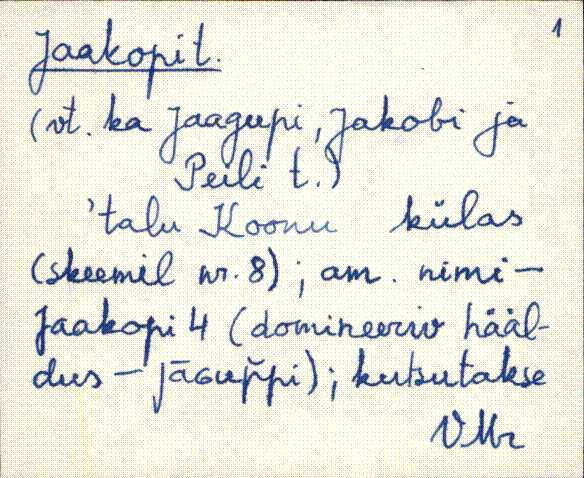 1
Jaakopi t.
(vt. ka Jaagupi, Jakobi ja
Peili t.)
'talu Koonu külas
(skeemil nr. 8); am. nimi —
Jaakopi 4 (domineeriv hääl-
dus — jāGup̆pi); kutsutakse
VMr